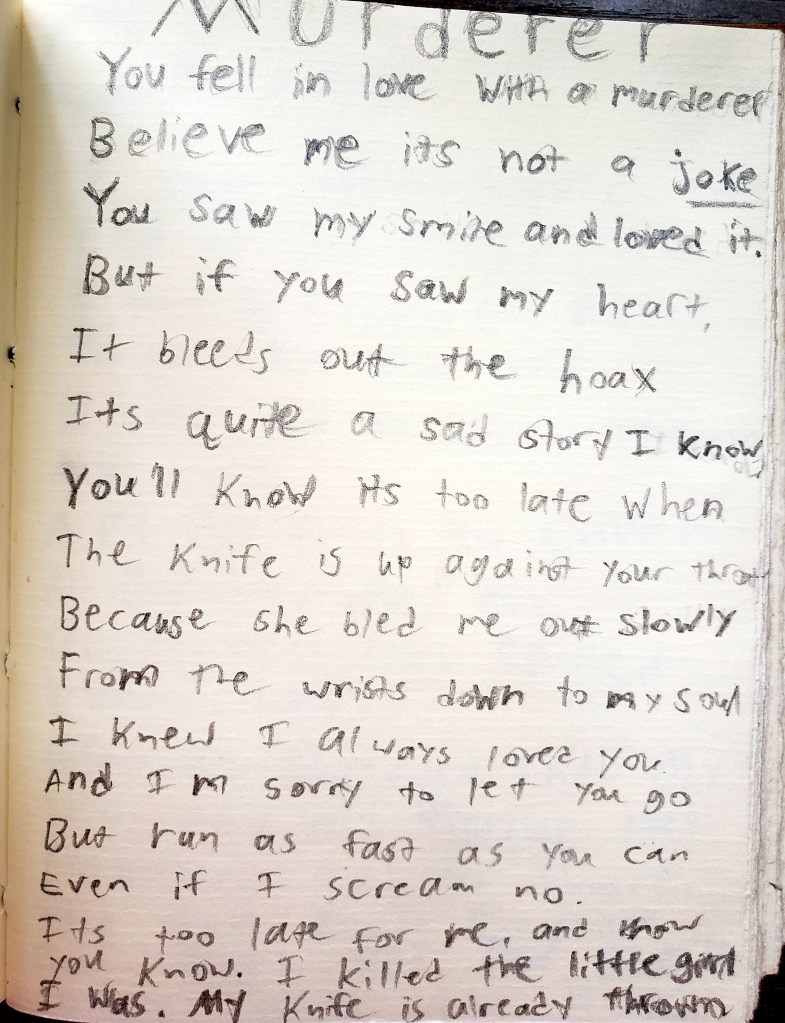 Murderer
You fell in love with a murderer
Believe me its not a joke
You saw my smile and loved it.
But if you saw my heart,
It bleeds out the hoax
Its quite a sad story I know
You'll know its too late when
The knife is up against your throat
Because she bled me out slowly
From the wrists down to my soul
I knew I always loved you
And I'm sorry to let you go
But run as fast as you can
Even if I scream no.
Its too late for me, and know
you know. I killed the little girl
I was. My knife is already thrown